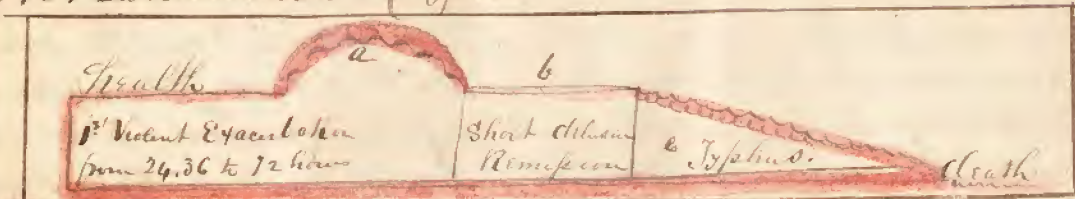 a
b
Health
1st Violent Exacerbation
from 24, 36 to 72 hours
Short delusive
Remission
c Typhus.
Death